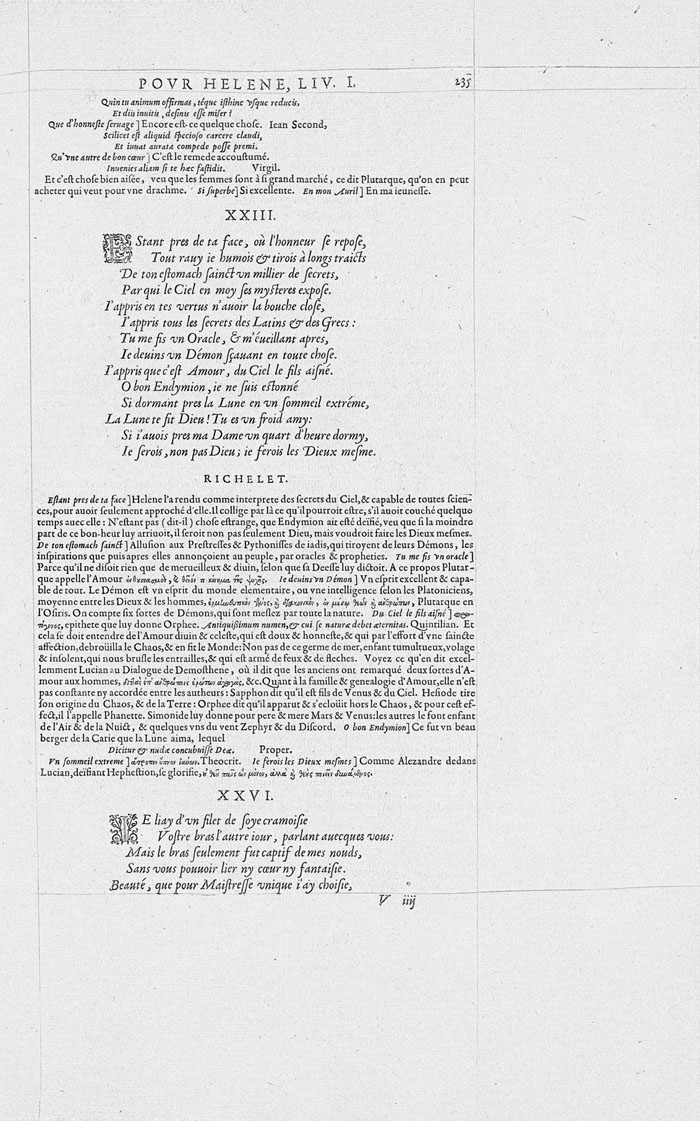 POVR HELENE, LIV. I. 235
Quin tu animum offirmas, téque isthinc vsque reducis,
Et diis inuitis, desinis esse miser?
Que d'honneste seruage] Encore est-ce quelque chose. Iean Second,
Scilicet est aliquid specioso carcere claudi,
Et iuuat aurata compede posse premi.
Qu'vne autre de bon cœur] C'est le remede accoustumé.
Inuenies aliam si te hæc fastidit. Virgil.
Et c'est chose bien aisée, veu que les femmes sont à si grand marché, ce dit Plutarque, qu'on en peut
acheter qui veut pour vne drachme. Si superbe] Si excellente. En mon Auril] En ma ieunesse.
XXIII.
EStant pres de ta face, où l'honneur se repose,
Tout rauy ie humois & tirois à longs traicts
De ton estomach sainct vn millier de secrets,
Par qui le Ciel en moy ses mysteres expose.
I'appris en tes vertus n'auoir la bouche close,
I'appris tous les secrets des Latins & des Grecs:
Tu me fis vn Oracle, & m'éueillant apres,
Ie deuins vn Démon sçauant en toute chose.
I'appris que c'est Amour, du Ciel le fils aisné.
O bon Endymion, ie ne suis estonné
Si dormant pres la Lune en vn sommeil extréme,
La Lune te fit Dieu! Tu es vn froid amy:
Si i'auois pres ma Dame vn quart d'heure dormy,
Ie serois, non pas Dieu; ie ferois les Dieux mesme.
RICHELET.
Estant pres de ta face] Helene l'a rendu comme interprete des secrets du Ciel, & capable de toutes scien-
ces, pour auoir seulement approché d'elle. Il collige par là ce qu'il pourroit estre, s'il auoit couché quelque
temps auec elle: N'estant pas (dit-il) chose estrange, que Endymion ait esté déifié, veu que si la moindre
part de ce bon-heur luy arriuoit, il seroit non pas seulement Dieu, mais voudroit faire les Dieux mesmes.
De ton estomach sainct] Allusion aux Prestresses & Pythonisses de iadis, qui tiroyent de leurs Démons, les
inspirations que puis apres elles annonçoient au peuple, par oracles & propheties. Tu me fis vn oracle]
Parce qu'il ne disoit rien que de merueilleux & diuin, selon que sa Deesse luy dictoit. A ce propos Plutar-
que appelle l'Amour Ie deuins vn Démon] Vn esprit excellent & capa-
ble de tout. Le Démon est vn esprit du monde elementaire, ou vne intelligence selon les Platoniciens,
moyenne entre les Dieux & les hommes, Plutarque en
l'Osiris. On compte six sortes de Démons, qui sont meslez par toute la nature. Du Ciel le fils aisné]
epithete que luy donne Orphee. Antiquißimum numen, & cui se natura debet æternitas. Quintilian. Et
cela se doit entendre de l'Amour diuin & celeste, qui est doux & honneste, & qui par l'effort d'vne saincte
affection, debroüilla le Chaos, & en fit le Monde: Non pas de ce germe de mer, enfant tumultueux, volage
& insolent, qui nous brusle les entrailles, & qui est armé de feux & de fleches. Voyez ce qu'en dit excel-
lemment Lucian au Dialogue de Demosthene, où il dit que les anciens ont remarqué deux sortes d'A-
mour aux hommes, &c. Quant à la famille & genealogie d'Amour, elle n'est
pas constante ny accordée entre les autheurs: Sapphon dit qu'il est fils de Venus & du Ciel. Hesiode tire
son origine du Chaos, & de la Terre: Orphee dit qu'il apparut & s'eclouït hors le Chaos, & pour cest ef-
fect, il l'appelle Phanette. Simonide luy donne pour pere & mere Mars & Venus: les autres le font enfant
de l'Air & de la Nuict, & quelques vns du vent Zephyr & du Discord. O bon Endymion] Ce fut vn beau
berger de la Carie que la Lune aima, lequel
Dicitur & nudæ concubuisse Deæ. Proper.
Vn sommeil extreme] Theocrit. Ie ferois les Dieux mesmes] Comme Alexandre dedans
Lucian, deïfiant Hephestion, se glorifie,
XXVI.
IE liay d'vn filet de soye cramoisie
Vostre bras l'autre iour, parlant auecques vous:
Mais le bras seulement fut captif de mes nouds,
Sans vous pouuoir lier ny cœur ny fantaisie.
Beauté, que pour Maistresse vnique i'ay choisie,
V iiij